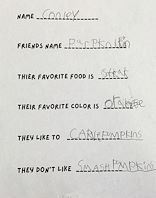 NAME Conley
FRIENDS NAME
THIER FAVORITE FOOD IS
THEIR FAVORITE COLOR IS Orange
THEY LIKE TO CARVE PUMPKINS
THEY DON'T LIKE SMASH PUMPKINS